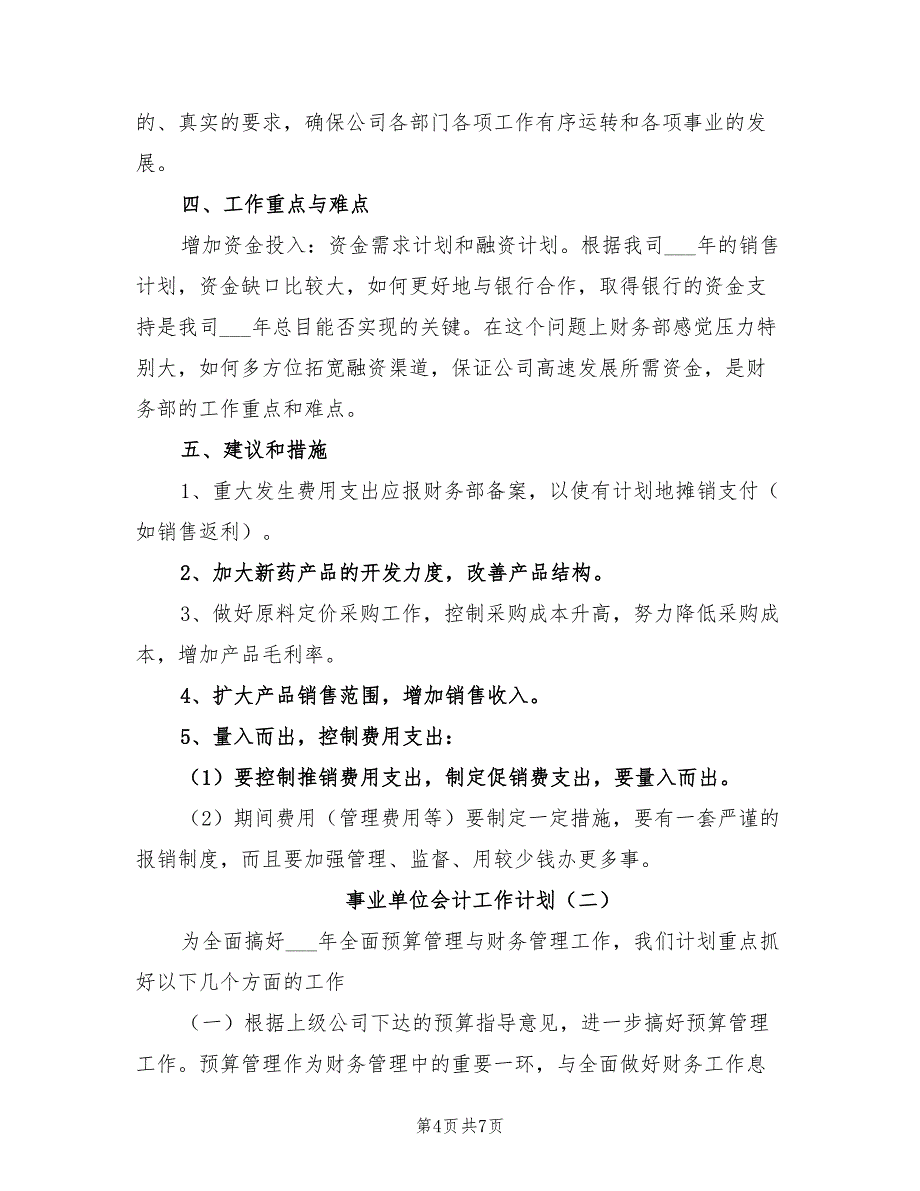 的、真实的要求，确保公司各部门各项工作有序运转和各项事业的发
展。
四、工作重点与难点
增加资金投入：资金需求计划和融资计划。根据我司___年的销售
计划，资金缺口比较大，如何更好地与银行合作，取得银行的资金支
持是我司___年总目能否实现的关键。在这个问题上财务部感觉压力特
别大，如何多方位拓宽融资渠道，保证公司高速发展所需资金，是财
务部的工作重点和难点。
五、建议和措施
1、重大发生费用支出应报财务部备案，以使有计划地摊销支付（
如销售返利）。
2、加大新药产品的开发力度，改善产品结构。
3、做好原料定价采购工作，控制采购成本升高，努力降低采购成
本，增加产品毛利率。
4、扩大产品销售范围，增加销售收入。
5、量入而出，控制费用支出：
（1）要控制推销费用支出，制定促销费支出，要量入而出。
（2）期间费用（管理费用等）要制定一定措施，要有一套严谨的
报销制度，而且要加强管理、监督、用较少钱办更多事。
事业单位会计工作计划（二）
为全面搞好___年全面预算管理与财务管理工作，我们计划重点抓
好以下几个方面的工作
（一）根据上级公司下达的预算指导意见，进一步搞好预算管理
工作。预算管理作为财务管理中的重要一环，与全面做好财务工作息
第4页共7页